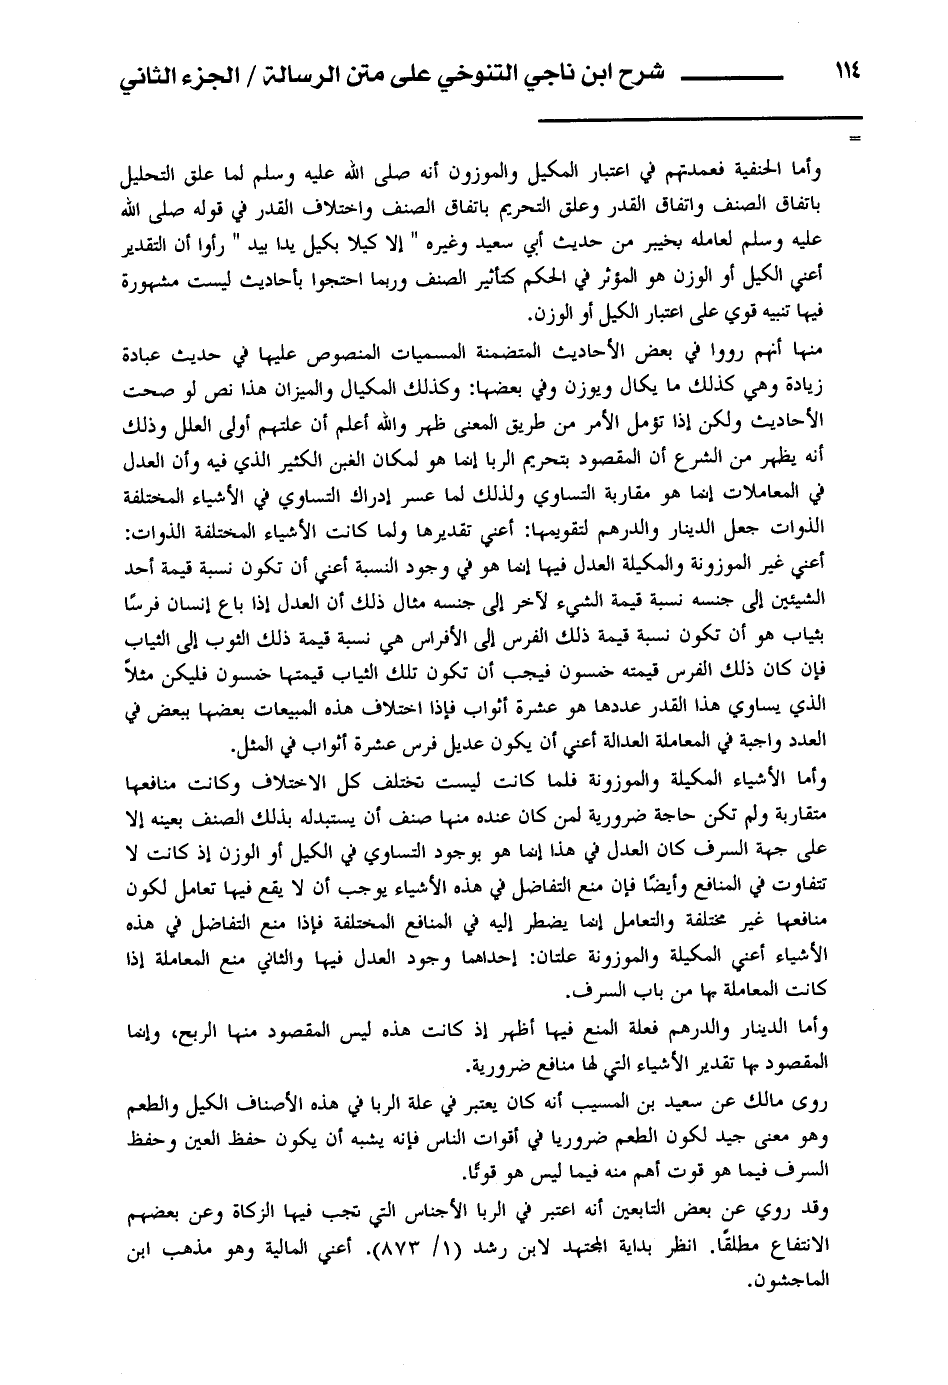 ١١٤ ــــــــــ شرح ابن ناجي التنوخي على متن الرسالة / الجزء الثاني
=
وأما الحنفية فعمدتهم في اعتبار المكيل والموزون أنه صلى الله عليه وسلم لما علق التحليل
باتفاق الصنف واتفاق القدر وعلق التحريم باتفاق الصنف واختلاف القدر في قوله صلى الله
عليه وسلم لعامله بخيبر من حديث أبي سعيد وغيره " إلا كيلا بكيل يدا بيد " رأوا أن التقدير
أعني الكيل أو الوزن هو المؤثر في الحكم كتأثير الصنف وربما احتجوا بأحاديث ليست مشهورة
فيها تنبيه قوي على اعتبار الكيل أو الوزن.
منها أنهم رووا في بعض الأحاديث المتضمنة المسميات المنصوص عليها في حديث عبادة
زيادة وهي كذلك ما يكال ويوزن وفي بعضها: وكذلك المكيال والميزان هذا نص لو صحت
الأحاديث ولكن إذا تؤمل الأمر من طريق المعنى ظهر والله أعلم أن علتهم أولى العلل وذلك
أنه يظهر من الشرع أن المقصود بتحريم الربا إنما هو لمكان الغبن الكثير الذي فيه وأن العدل
في المعاملات إنما هو مقاربة التساوي ولذلك لما عسر إدراك التساوي في الأشياء المختلفة
الذوات جعل الدينار والدرهم لتقويمها: أعني تقديرها ولما كانت الأشياء المختلفة الذوات:
أعني غير الموزونة والمكيلة العدل فيها إنما هو في وجود النسبة أعني أن تكون نسبة قيمة أحد
الشيئين إلى جنسه نسبة قيمة الشيء لآخر إلى جنسه مثال ذلك أن العدل إذا باع إنسان فرسًا
بثياب هو أن تكون نسبة قيمة ذلك الفرس إلى الأفراس هي نسبة قيمة ذلك الثوب إلى الثياب
فإن كان ذلك الفرس قيمته خمسون فيجب أن تكون تلك الثياب قيمتها خمسون فليكن مثلاً
الذي يساوي هذا القدر عددها هو عشرة أثواب فإذا اختلاف هذه المبيعات بعضها ببعض في
العدد واجبة في المعاملة العدالة أعني أن يكون عديل فرس عشرة أثواب في المثل.
وأما الأشياء المكيلة والموزونة فلما كانت ليست تختلف كل الاختلاف وكانت منافعها
متقاربة ولم تكن حاجة ضرورية لمن كان عنده منها صنف أن يستبدله بذلك الصنف بعينه إلا
على جهة السرف كان العدل في هذا إنما هو بوجود التساوي في الكيل أو الوزن إذ كانت لا
تتفاوت في المنافع وأيضًا فإن منع التفاضل في هذه الأشياء يوجب أن لا يقع فيها تعامل لكون
منافعها غير مختلفة والتعامل إنما يضطر إليه في المنافع المختلفة فإذا منع التفاضل في هذه
الأشياء أعني المكيلة والموزونة علتان: إحداهما وجود العدل فيها والثاني منع المعاملة إذا
كانت المعاملة بها من باب السرف.
وأما الدينار والدرهم فعلة المنع فيها أظهر إذ كانت هذه ليس المقصود منها الربح، وإنما
المقصود بها تقدير الأشياء التي لها منافع ضرورية.
روى مالك عن سعيد بن المسيب أنه كان يعتبر في علة الربا في هذه الأصناف الكيل والطعم
وهو معنى جيد لكون الطعم ضروريا في أقوات الناس فإنه يشبه أن يكون حفظ العين وحفظ
السرف فيما هو قوت أهم منه فيما ليس هو قوتًا.
وقد روي عن بعض التابعين أنه اعتبر في الربا الأجناس التي تجب فيها الزكاة وعن بعضهم
الانتفاع مطلقًا. انظر بداية المجتهد لابن رشد (١/ ٨٧٣). أعني المالية وهو مذهب ابن
الماجشون.